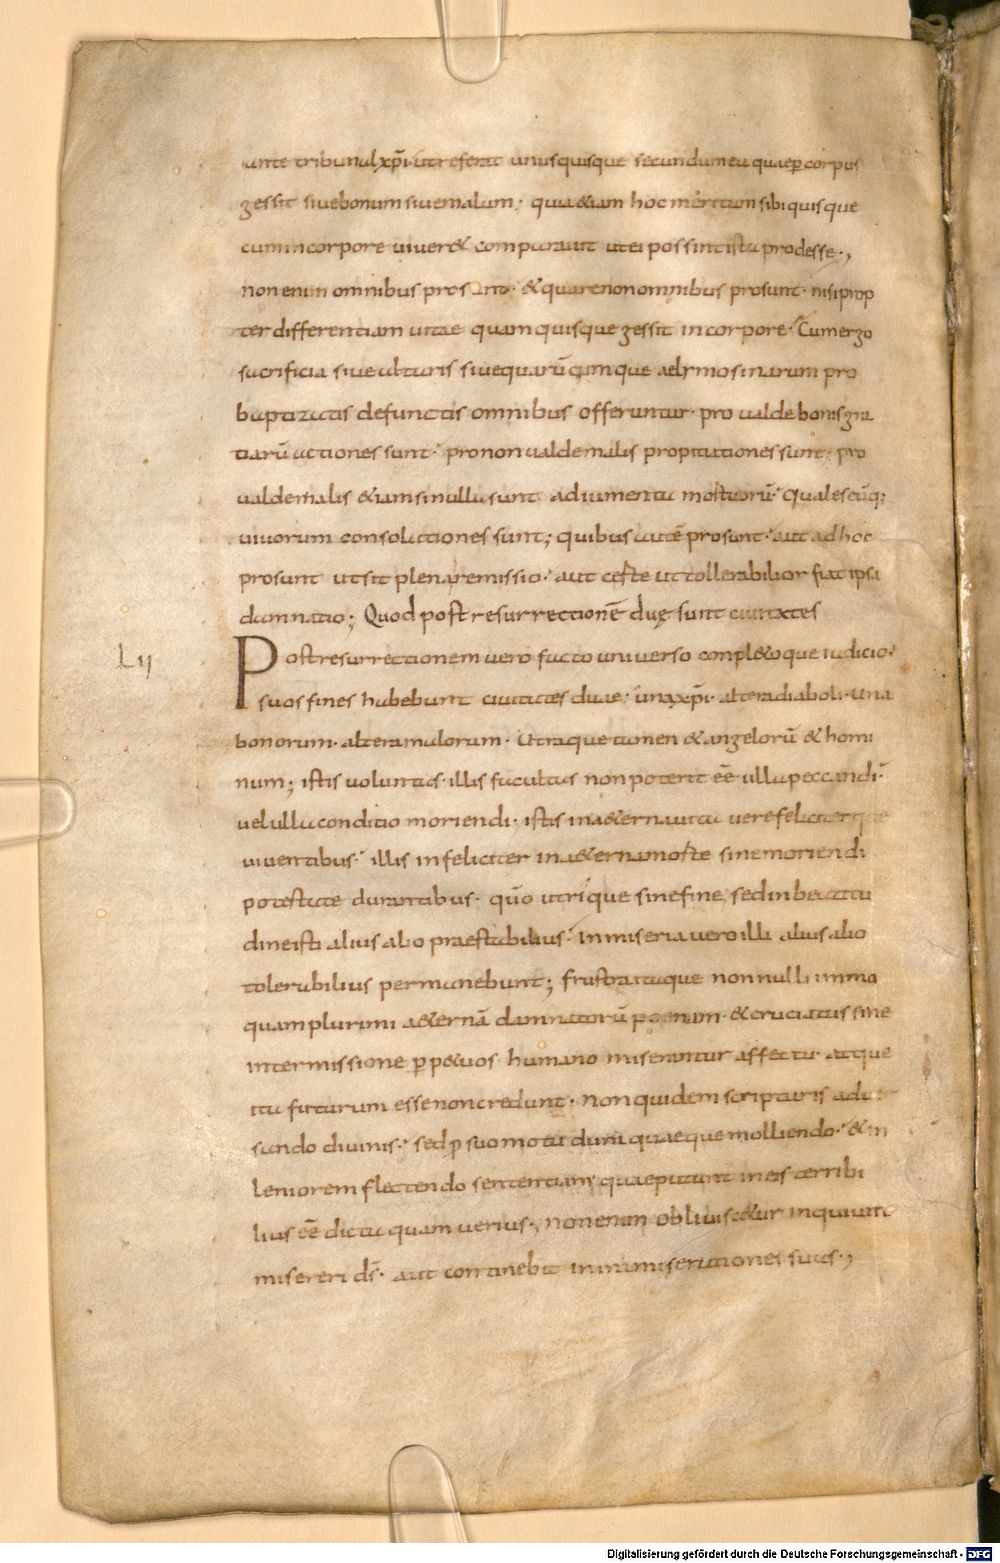 ante tribunal xp̄i· ut referat unusquisque secundum ea quae ꝑ corpus
gessit sive bonum sive malum· quia & iam hoc meritum sibi quisque
cum in corpore viver& comparavit ut ei possint ista prodesse·,
non enim omnibus pros unt· & quare non omnibus prosunt· nisi prop
ter differentiam vitae quam quisque gessit in corpore· Cum ergo
sacrificia sive altaris sive quarū cumque aelymosinarum pro
baptizatis defunctis omnibus offeruntur· pro valde bonis gra
tiarū actiones sunt· pro non valde malis propitiationes sunt· pro
valde malis & iam si nulla sunt adiumenta mortuorū· qualescūq;
vivorum consolationes sunt; quibus autē prosunt· aut ad hoc
prosunt ut sit plena remissio· aut certe ut tollerabilior fiat ipsa
damnatio; Quod post resurrectionē duę sunt civitates
Lvj
Post resurrectionem vero facto universo conpl&o que iudicio·
suos fines habebunt civitates duae· una xp̄i· altera diaboli· Una
bonorum· altera malorum· Utraque tamen & angelorū & homi
num; istis voluntas· illis facultas non poterit eē ulla peccandi·
vel ulla conditio moriendi· istis in a&erna vita vere feliciterque
viventibus· illis infeliciter in a&erna morte sine moriendi
potestate durantibus· qūo utrique sine fine, sed in beatitu
dine isti alius alio praestabilius· in miseria vero illi alius alio
tolerabilius permanebunt; frustra itaque nonnulli immo
quam plurimi a&ernā damnatorū poenam· & cruciatus sine
intermissione ꝑp&uos humano miserantur affectu· atque
ita futurum esse non credunt· non quidem scripturis adver
sando divinis· sed ꝓ suo motu dura quaeque molliendo· & in
leniorem flectendo sententiam quae putant in eis terribi
lius eē dicta quam verius·, non enim obliviscetur inquiunt
misereri dš· aut continebit in ira miserationes suas·,
Digitalisierung gefördert durch die Deutsche Forschungsgemeinschaft - DFG